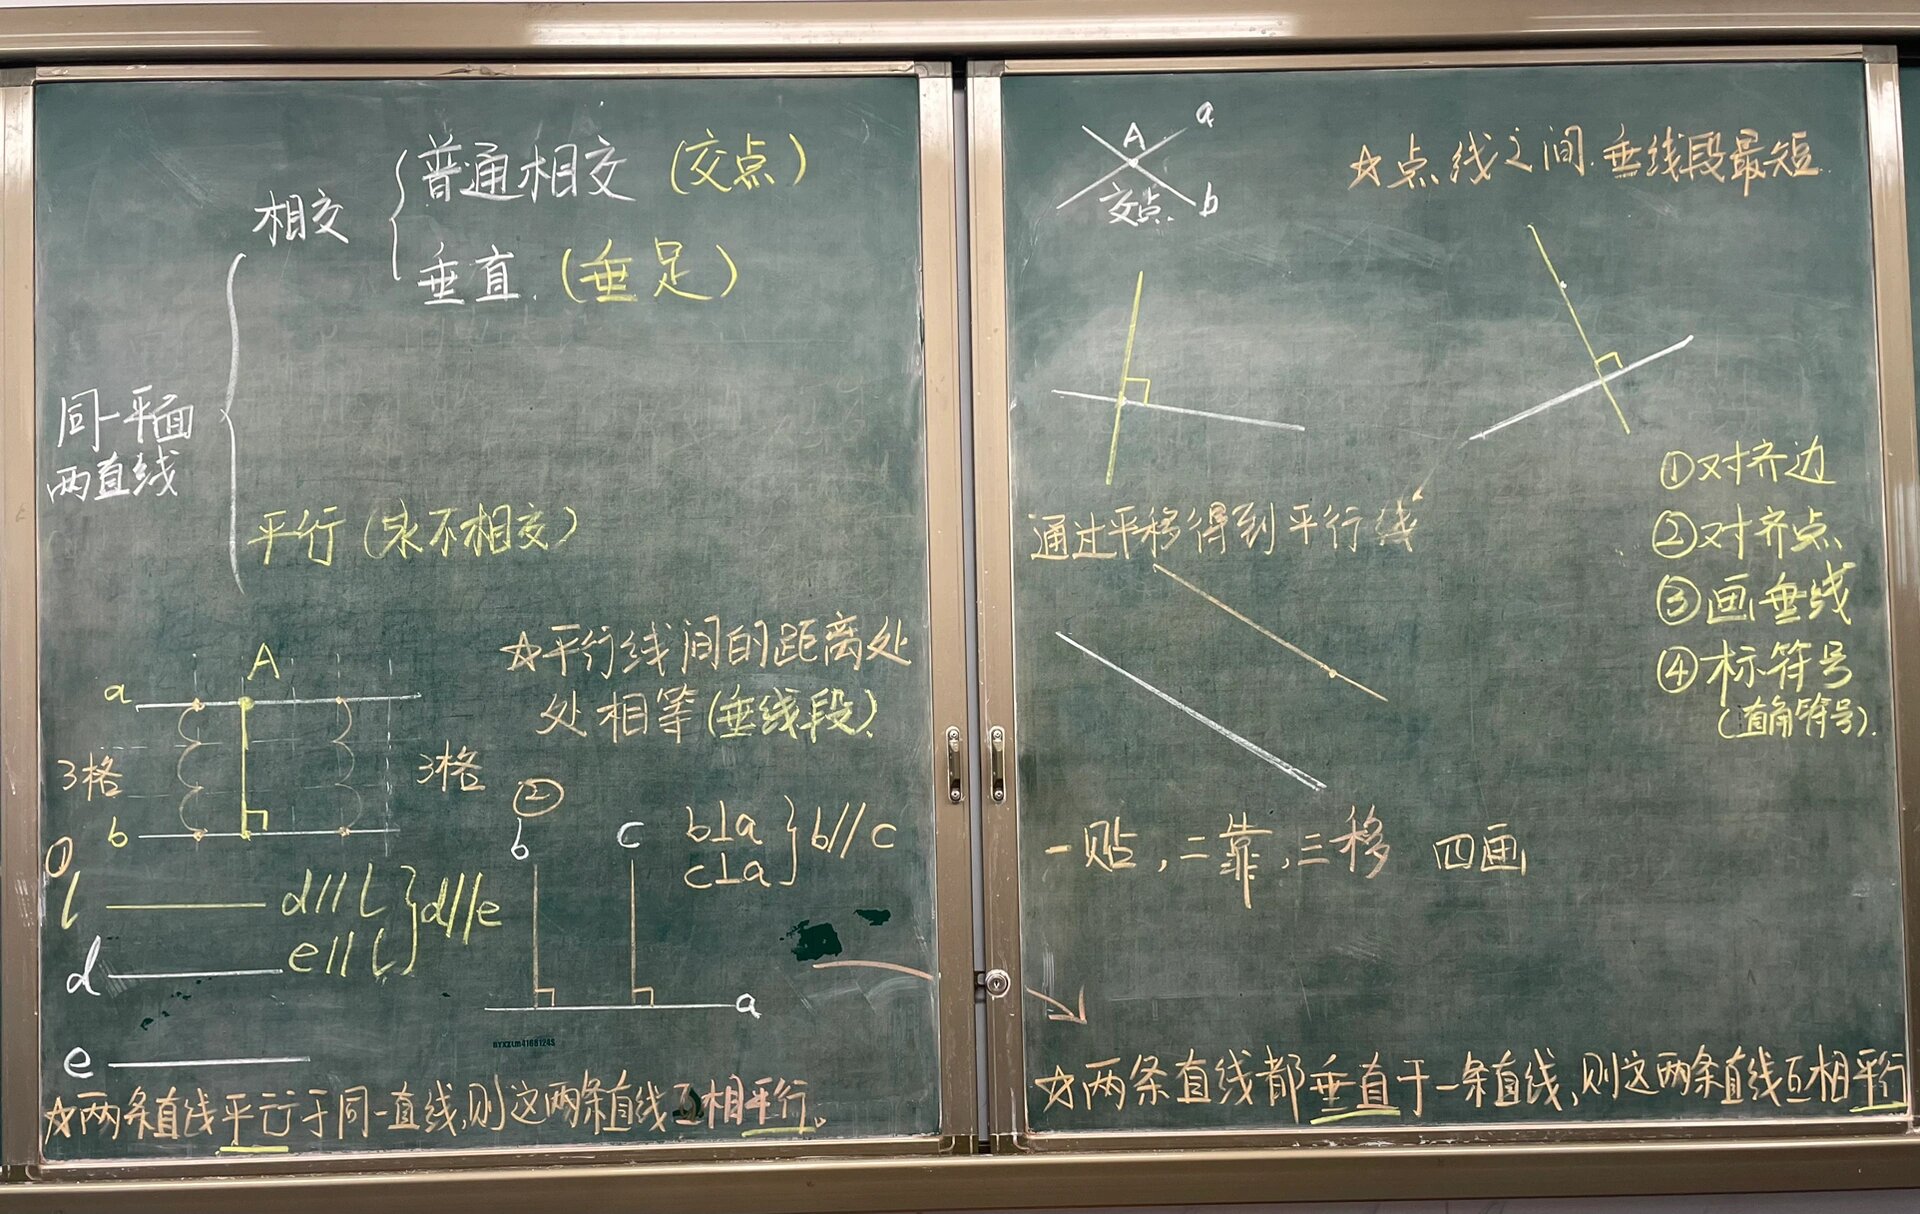 相交
普通相交(交点)
垂直.(垂足)
同一平面
两直线
平行(永不相交)
☆平行线间的距离处
处相等(垂线段)
A
a
3格
3格
b
①
l
d//l
e//l
d//e
d
e
②
b
c
b⊥a
c⊥a
b//c
a
☆两条直线平行于同一直线,则这两条直线互相平行。
A
a
交点
b
☆点线之间.垂线段最短.
①对齐边
②对齐点
③画垂线
④标符号
(直角符号).
通过平移得到平行线
一贴,二靠,三移 四画
☆两条直线都垂直于一条直线,则这两条直线互相平行